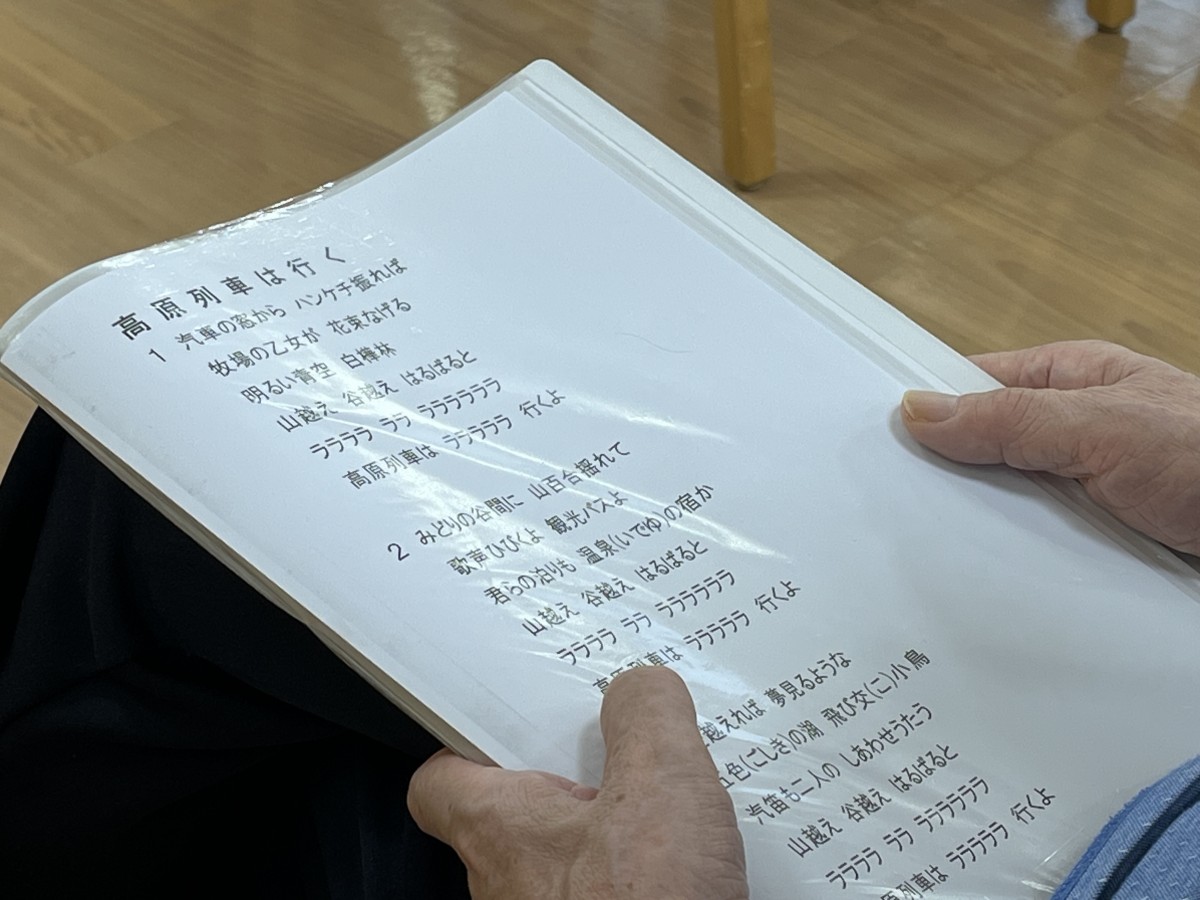 高原列車は行く
1 汽車の窓から ハンケチ振れば
牧場の乙女が 花束なげる
明るい青空 白樺林
山越え 谷越え はるばると
ララララ ララ ララララララ
高原列車は ラララララ 行くよ
2 みどりの谷間に 山百合揺れて
歌声ひびくよ 観光バスよ
君らの泊りも 温泉(いでゆ)の宿か
山越え 谷越え はるばると
ララララ ララ ララララララ
高原列車は ラララララ 行くよ
越えれば 夢見るような
五色(ごしき)の湖 飛び交(こ)小鳥
汽笛も二人の しあわせうたう
山越え 谷越え はるばると
ララララ ララ ララララララ
原列車は ラララララ 行くよ